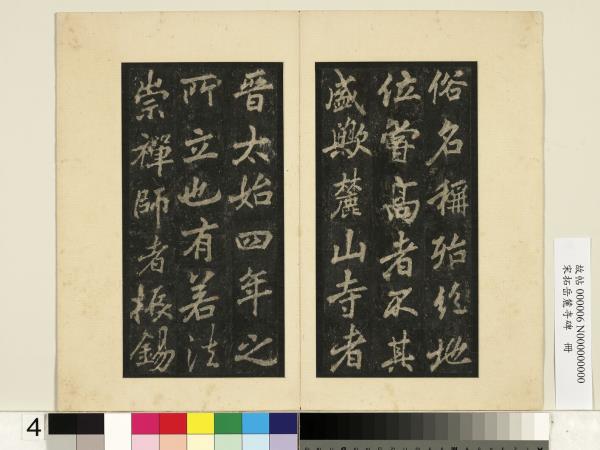 俗名稱殆絕地
位嘗高者不其
盛歟麓山寺者
晉太始四年之
所立也有若法
崇禪師者振錫
故帖 000006 N000000000
宋拓岳麓寺碑 冊
4